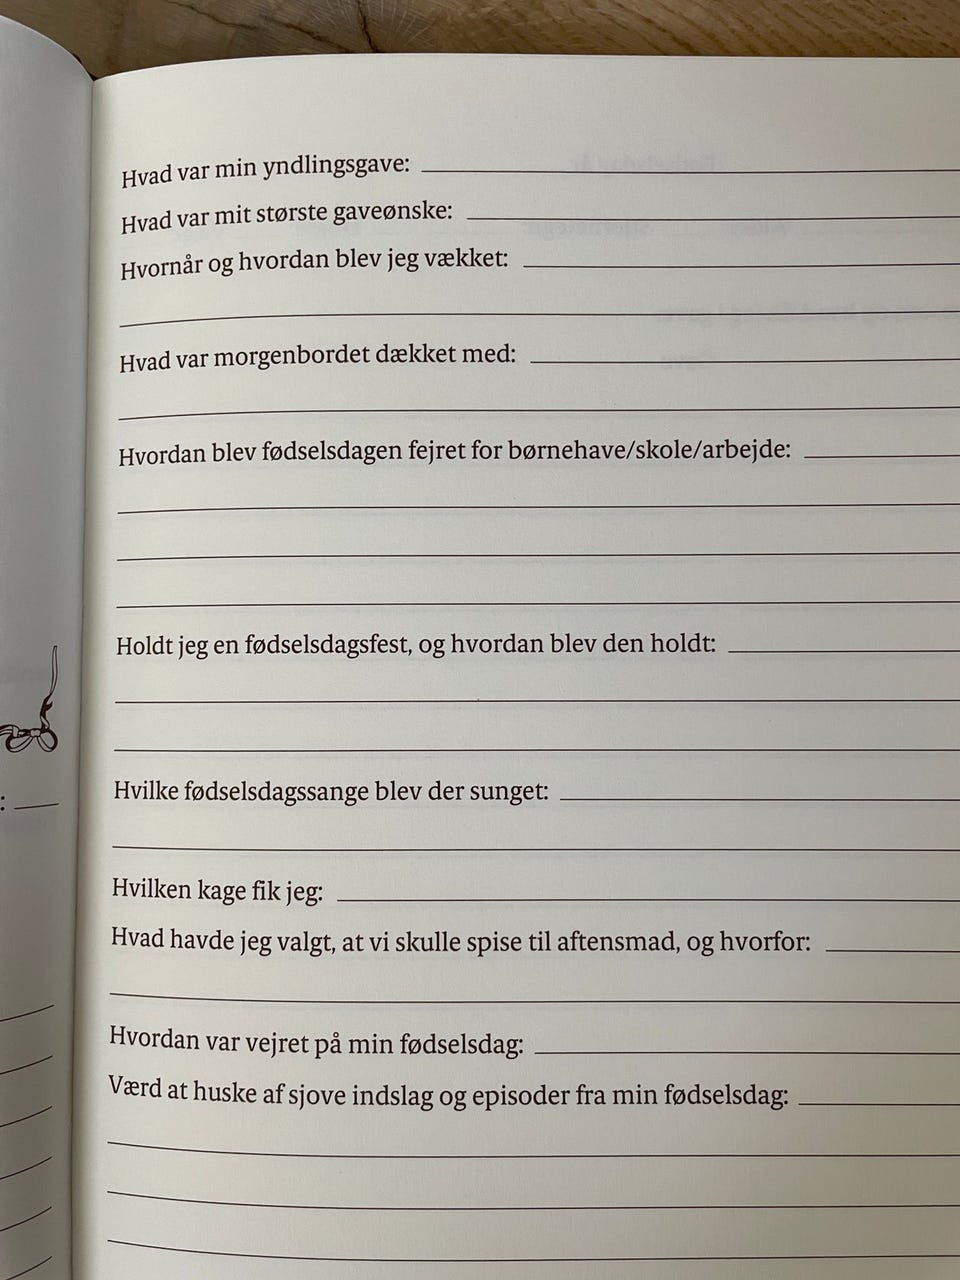 Hvad var min yndlingsgave:
Hvad var mit største gaveønske:
Hvornår og hvordan blev jeg vækket:
Hvad var morgenbordet dækket med:
Hvordan blev fødselsdagen fejret for børnehave/skole/arbejde:
Holdt jeg en fødselsdagsfest, og hvordan blev den holdt:
Hvilke fødselsdagssange blev der sunget:
Hvilken kage fik jeg:
Hvad havde jeg valgt, at vi skulle spise til aftensmad, og hvorfor:
Hvordan var vejret på min fødselsdag:
Værd at huske af sjove indslag og episoder fra min fødselsdag: